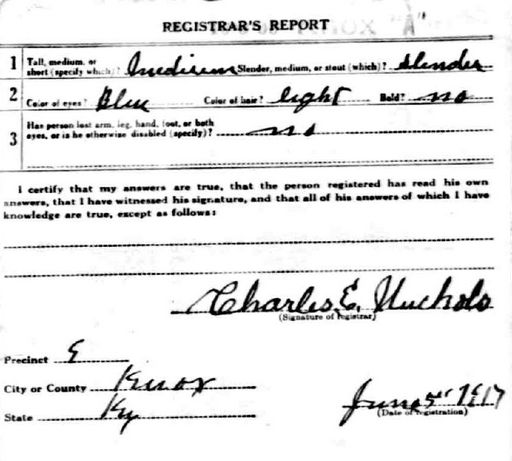 REGISTRAR'S REPORT
1 Tall, medium, or short (specify which)? Medium Slender, medium, or stout (which)? slender
2 Color of eyes? Blue Color of hair? light Bald? no
3 Has person lost arm, leg, hand, foot, or both eyes, or is he otherwise disabled (specify)? no
I certify that my answers are true, that the person registered has read his own
answers, that I have witnessed his signature, and that all of his answers of which I have
knowledge are true, except as follows:
Charles E. Nuchols
(Signature of registrar)
Precinct E
City or County Knox
State Ky
June 5" 1917
(Date of registration)